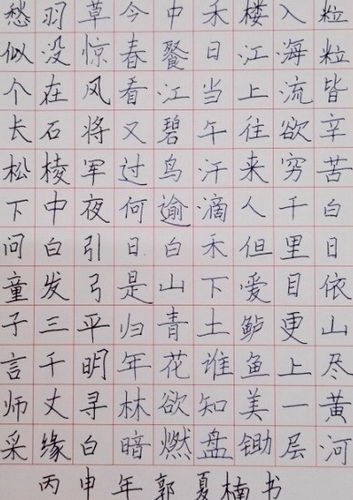 粒粒皆辛苦白日依山尽黄河
入海流欲穷千里目更上一层
楼江上往来人但爱鲈鱼美锄
禾日当午汗滴禾下土谁知盘
中餐江碧鸟逾白山青花欲燃
今春看又过何日是归年林暗
草惊风将军夜引弓平明寻白
羽没在石棱中白发三千丈缘
愁似个长松下问童子言师采
丙申年郭夏楠书